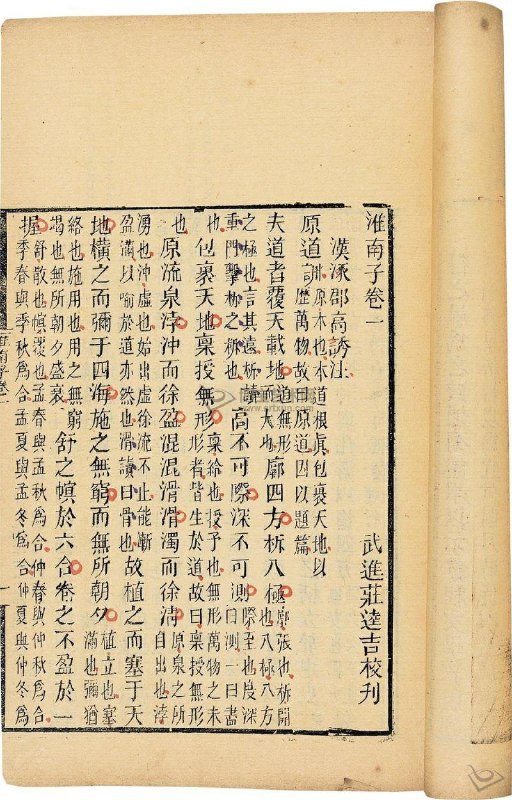 淮南子卷一　武進莊逵吉校刊
漢涿郡高誘注
原道訓原本也本道根眞包裹天地以歷萬物故曰原道因以題篇
夫道者覆天載地道無形而大也廓四方柝八極廓張也柝開也八極八方
之極也言其遠柝讀重門擊柝之柝也高不可際深不可測際至也度深曰測一曰盡
也包裹天地稟授無形稟給也授予也無形萬物之未形者皆生於道故曰稟授無形
也原流泉浡沖而徐盈混混滑滑濁而徐清原泉之所自出也浡
湧也沖虛也始出虛徐流不止能漸盈滿以喻於道亦然也滑讀曰骨也故植之而塞于天
地橫之而彌于四海施之無窮而無所朝夕植立也塞滿也彌猶
絡也施用也用之無窮竭也無所朝夕盛衰舒之幎於六合卷之不盈於一
握舒散也幎覆也孟春與孟秋爲合仲春與仲秋爲合季春與季秋爲合孟夏與孟冬爲合仲夏與仲冬爲
淮南子卷一